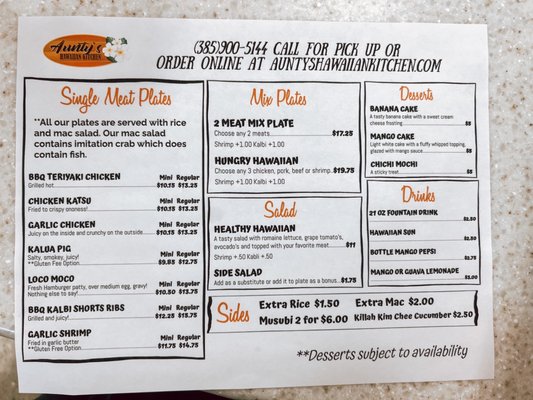 Aunty's
HAWAIIAN KITCHEN
(385)900-5144 CALL FOR PICK UP OR
ORDER ONLINE AT AUNTYSHAWAIIANKITCHEN.COM
Single Meat Plates
**All our plates are served with rice
and mac salad. Our mac salad
contains imitation crab which does
contain fish.
BBQ TERIYAKI CHICKEN Mini Regular
Grilled hot $10.15 $13.25
CHICKEN KATSU Mini Regular
Fried to crispy oneness! $10.15 $13.25
GARLIC CHICKEN Mini Regular
Juicy on the inside and crunchy on the outside $10.15 $13.25
KALUA PIG
Salty, smokey, juicy! Mini Regular
**Gluten Free Option $9.85 $12.75
LOCO MOCO
Fresh Hamburger patty, over medium egg, gravy! Mini Regular
Nothing else to say! $10.50 $13.75
BBQ KALBI SHORTS RIBS Mini Regular
Grilled and juicy! $12.25 $15.75
GARLIC SHRIMP
Fried in garlic butter Mini Regular
**Gluten Free Option $11.75 $14.75
Mix Plates
2 MEAT MIX PLATE
Choose any 2 meats $17.25
Shrimp +1.00 Kalbi +1.00
HUNGRY HAWAIIAN
Choose any 3 chicken, pork, beef or shrimp $19.75
Shrimp +1.00 Kalbi +1.00
Salad
HEALTHY HAWAIIAN
A tasty salad with romaine lettuce, grape tomato's,
avocado's and topped with your favorite meat $11
Shrimp +.50 Kabli +.50
SIDE SALAD
Add as a substitute or add it to plate as a bonus. $1.75
Desserts
BANANA CAKE
A tasty banana cake with a sweet cream
cheese frosting $5
MANGO CAKE
Light white cake with a fluffy whipped topping,
glazed with mango sauce $5
CHICHI MOCHI
A sticky treat $5
Drinks
21 OZ FOUNTAIN DRINK
$2.50
HAWAIIAN SUN
$2.50
BOTTLE MANGO PEPSI
$2.75
MANGO OR GUAVA LEMONADE
$3.00
Sides
Extra Rice $1.50 Extra Mac $2.00
Musubi 2 for $6.00 Killah Kim Chee Cucumber $2.50
**Desserts subject to availability